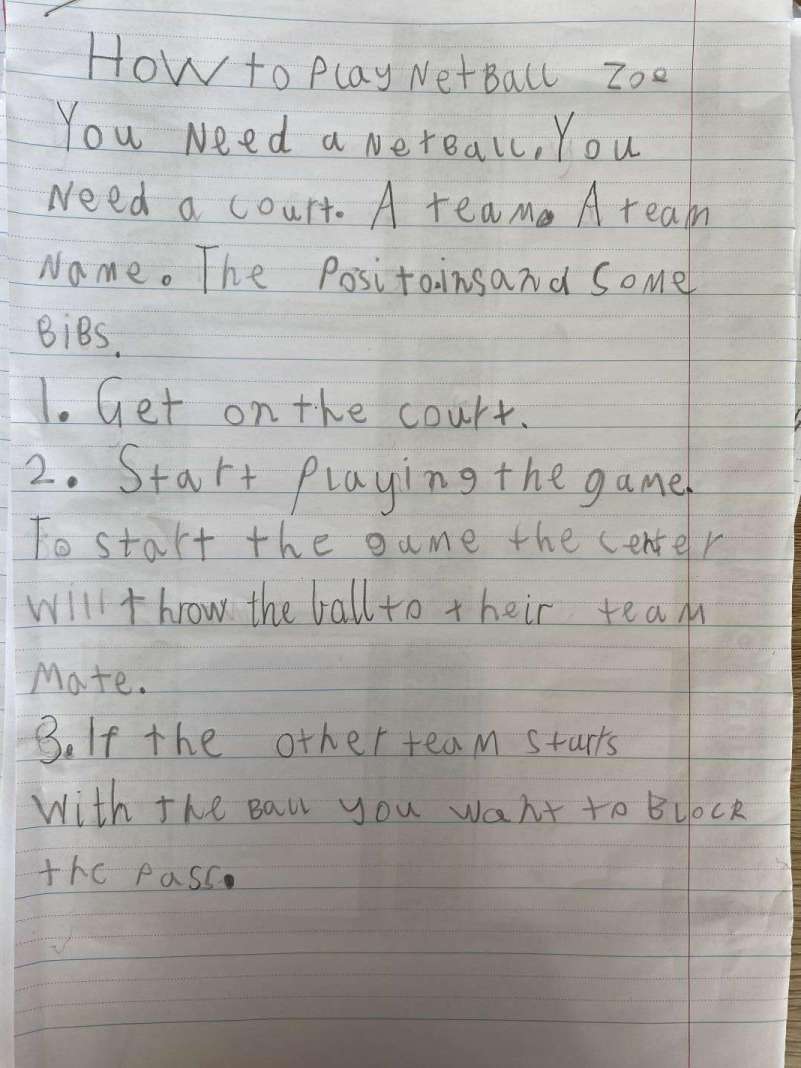 How to Play NetBall Zoe
You Need a NetBall. You
Need a court. A team. A team
Name. The Positoins and Some
BiBs.
1. Get on the court.
2. Start Playing the game.
To start the game the center
Will throw the ball to their team
Mate.
3. If the other team starts
With the Ball you want to Block
the Pass.